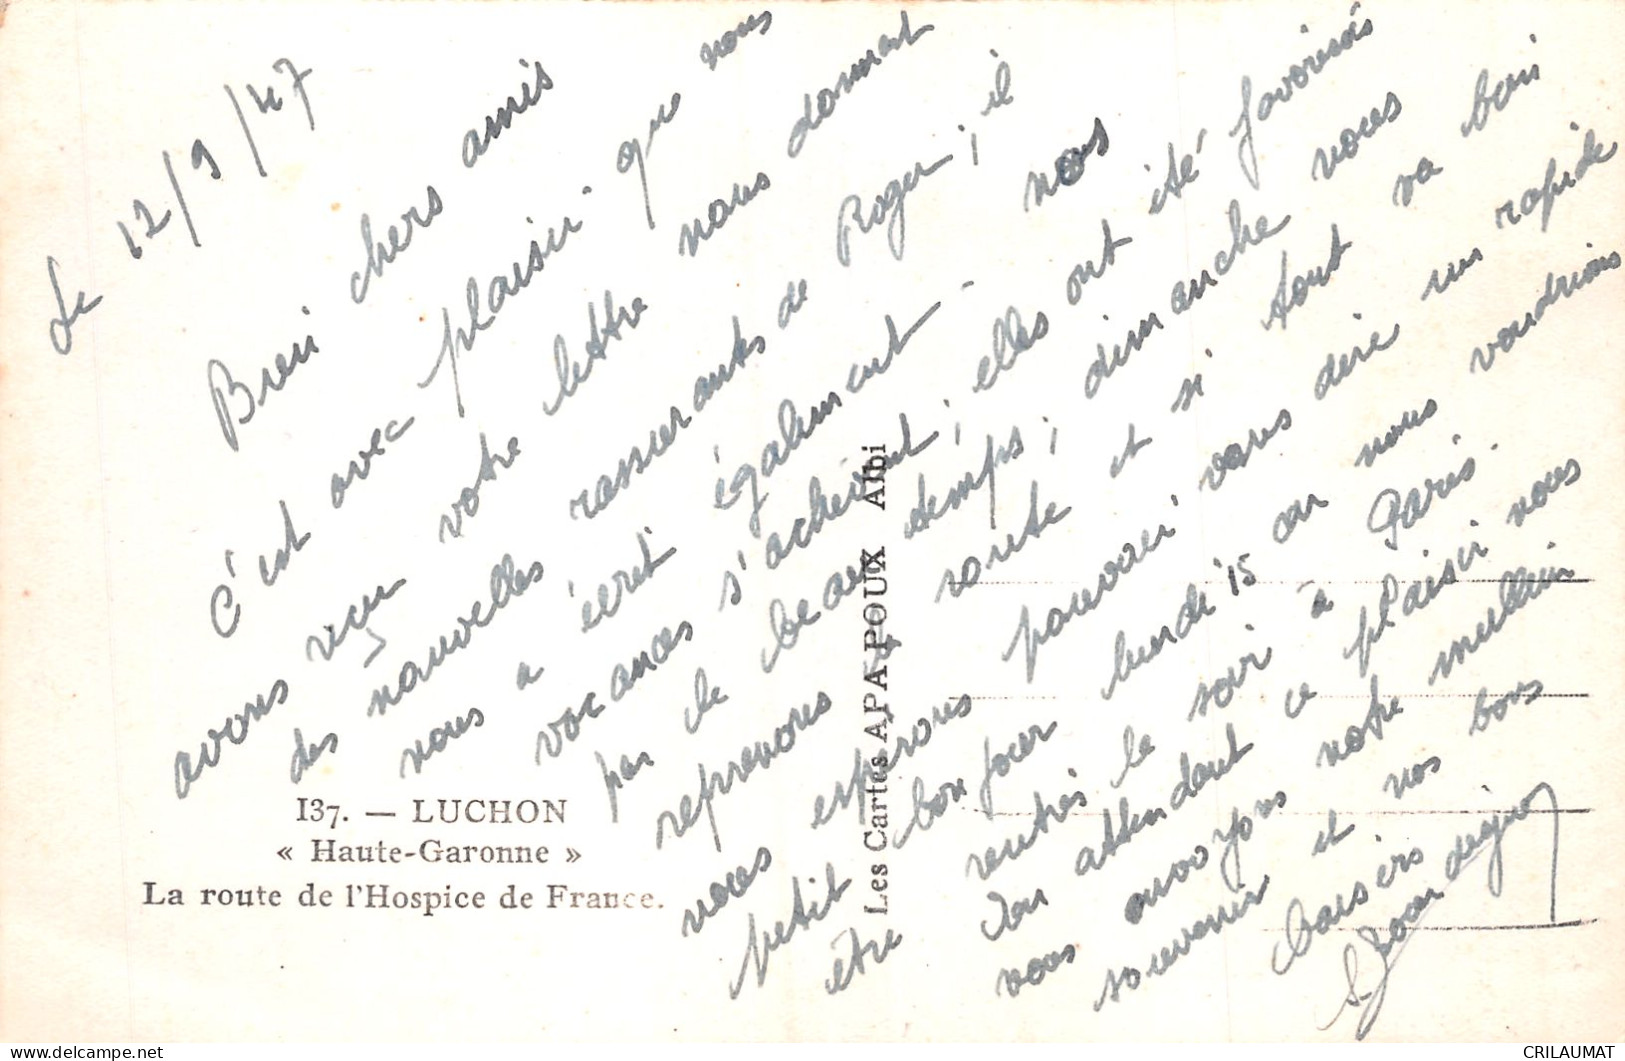 Le 12/9/47
Bien chers amis
C'est avec plaisir que nous
avons reçu votre lettre nous donnant
des nouvelles rassurantes de Roger ; il
nous a écrit également - nos
vacances s'achèvent ; elles ont été favorisés
par le beau temps ; dimanche nous
reprenons la route et si tout va bien
nous espérons pouvoir vous dire un rapide
petit bonjour lundi 15 où nous voudrions
être rentrés le soir à Paris.
En attendant ce plaisir nous
vous envoyons notre meilleur
souvenir et nos bons
baisers
137. — LUCHON
« Haute-Garonne »
La route de l'Hospice de France.
Les Cartes APA POUX Albi
CRILAUMAT